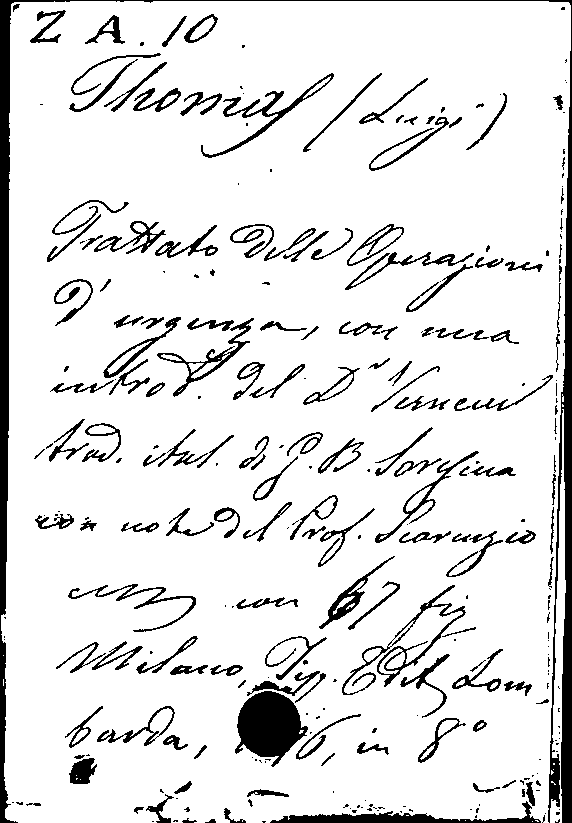 Z A. 10
Thomas (Luigi)
Trattato delle Operazioni
D' urgenza, con una
introd. del Dr Verneuil
trad. ital. di G. B. Soresina
con note del Prof. Scarenzio
con 67 fig
Milano, Tip. Edit Lom
barda, in 8º